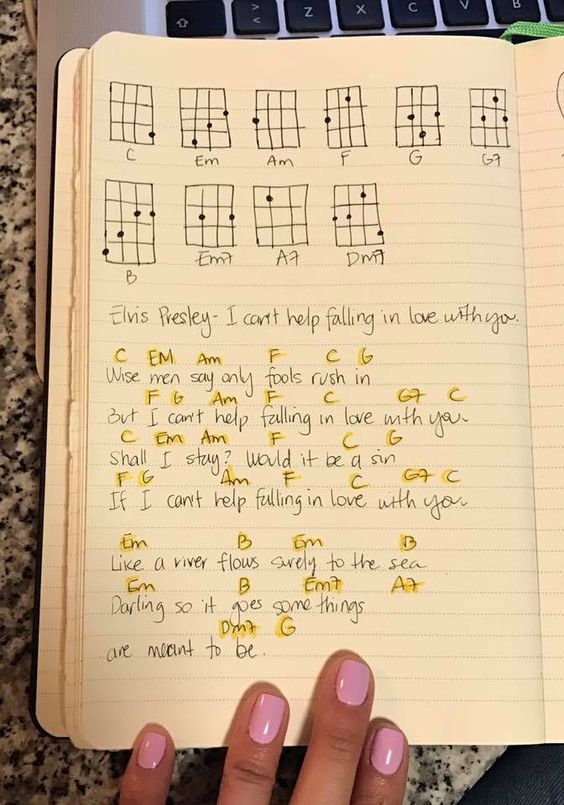 Z X C V B
C Em Am F G G7
B Em7 A7 Dm7
Elvis Presley - I can't help falling in love with you.
C EM Am F C G
Wise men say only fools rush in
F G Am F C G7 C
But I can't help falling in love with you
C Em Am F C G
Shall I stay? Would it be a sin
F G Am F C G7 C
If I can't help falling in love with you
Em B Em B
Like a river flows surely to the sea
Em B Em7 A7
Darling so it goes some things
Dm7 G
are meant to be.